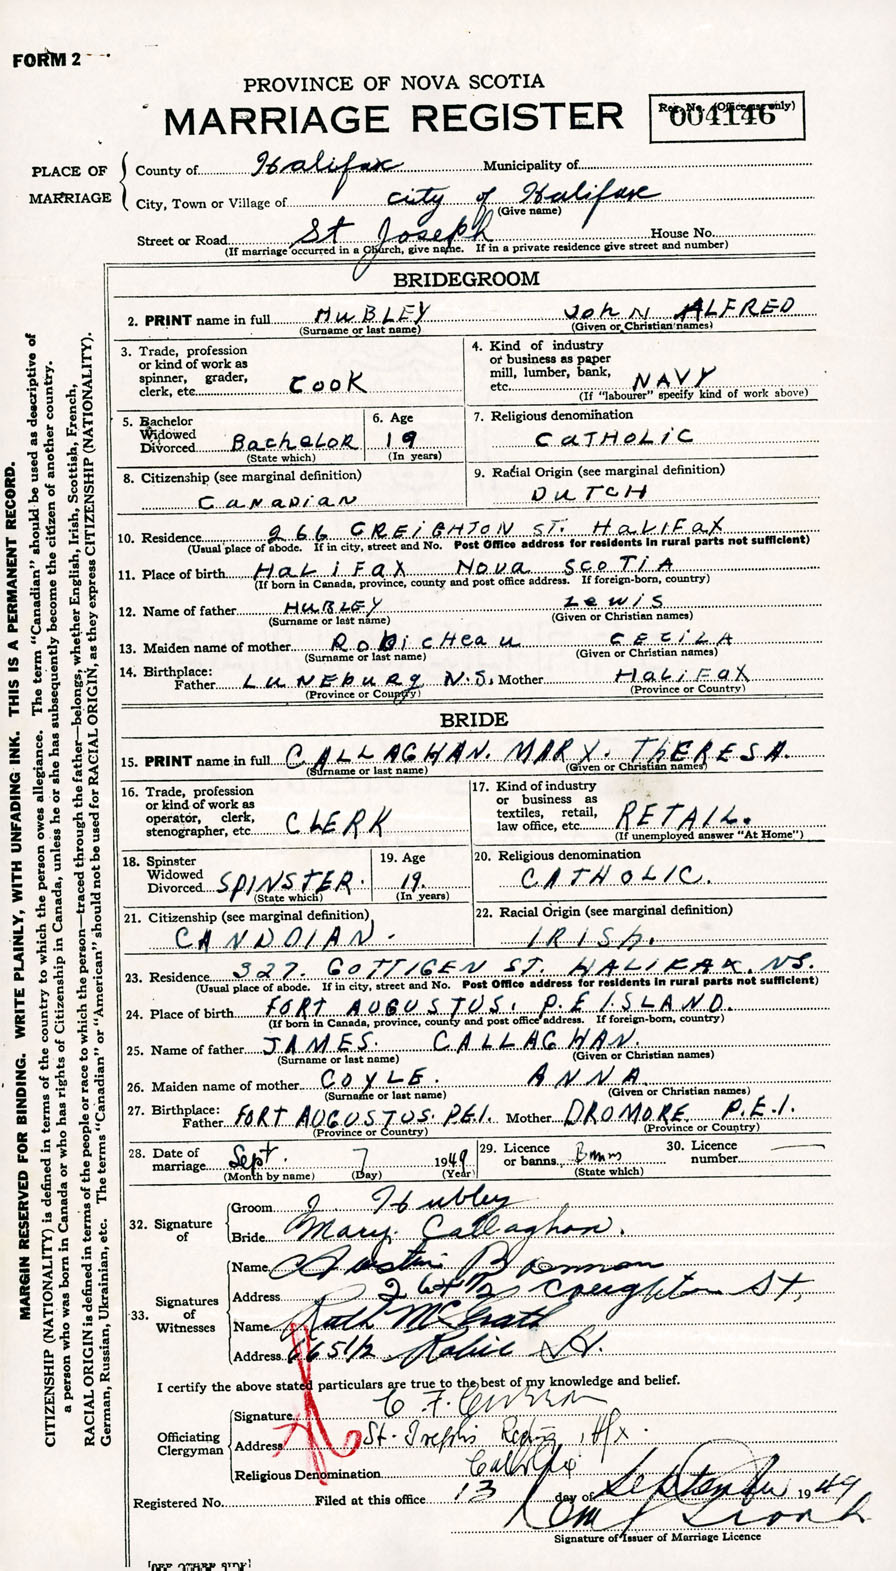 FORM 2
PROVINCE OF NOVA SCOTIA
MARRIAGE REGISTER
Reg. No. (Office use only)
004146
PLACE OF MARRIAGE
County of Halifax Municipality of
City, Town or Village of city of Halifax
(Give name)
Street or Road St Joseph House No.
(If marriage occurred in a Church, give name. If in a private residence give street and number)
BRIDEGROOM
2. PRINT name in full HUBLEY JOHN ALFRED
(Surname or last name) (Given or Christian names)
3. Trade, profession or kind of work as spinner, grader, clerk, etc. COOK
4. Kind of industry or business as paper mill, lumber, bank, etc. NAVY
(If "labourer" specify kind of work above)
5. Bachelor Widowed Divorced BACHELOR
(State which)
6. Age 19
(In years)
7. Religious denomination
CATHOLIC
8. Citizenship (see marginal definition)
CANADIAN
9. Racial Origin (see marginal definition)
DUTCH
10. Residence 266 CREIGHTON ST. HALIFAX
(Usual place of abode. If in city, street and No. Post Office address for residents in rural parts not sufficient)
11. Place of birth HALIFAX NOVA SCOTIA
(If born in Canada, province, county and post office address. If foreign-born, country)
12. Name of father HUBLEY LEWIS
(Surname or last name) (Given or Christian names)
13. Maiden name of mother ROBICHEAU CECILA
(Surname or last name) (Given or Christian names)
14. Birthplace:
Father LUNEBURG N.S. Mother HALIFAX
(Province or County) (Province or Country)
BRIDE
15. PRINT name in full CALLAGHAN. MARY. THERESA.
(Surname or last name) (Given or Christian names)
16. Trade, profession or kind of work as operator, clerk, stenographer, etc. CLERK
17. Kind of industry or business as textiles, retail, law office, etc. RETAIL.
(If unemployed answer "At Home")
18. Spinster Widowed Divorced SPINSTER.
(State which)
19. Age 19.
(In years)
20. Religious denomination
CATHOLIC.
21. Citizenship (see marginal definition)
CANDDIAN.
22. Racial Origin (see marginal definition)
IRISH.
23. Residence 327. GOTTIGEN ST. HALIFAX. NS.
(Usual place of abode. If in city, street and No. Post Office address for residents in rural parts not sufficient)
24. Place of birth FORT AUGUSTUS. P.E ISLAND.
(If born in Canada, province, county and post office address. If foreign-born, country)
25. Name of father JAMES. CALLAGHAN.
(Surname or last name) (Given or Christian names)
26. Maiden name of mother COYLE. ANNA
(Surname or last name) (Given or Christian names)
27. Birthplace:
Father FORT AUGUSTUS. P.E.I. Mother DROMORE P.E.I.
(Province or Country) (Province or Country)
28. Date of marriage Sept. 7 1949
(Month by name) (Day) (Year)
29. Licence or banns Banns
(State which)
30. Licence number
32. Signature of
Groom J. Hubley
Bride Mary. Callaghan.
33. Signatures of Witnesses
Name Austin
Address Creighton St,
Name Ruth McGrath
Address 6651/2 St.
I certify the above stated particulars are true to the best of my knowledge and belief.
Officiating Clergyman
Signature C F.
Address St. Joseph's Hfx.
Religious Denomination Catholic
Registered No. Filed at this office 13 day of September 1949
Signature of Issuer of Marriage Licence
[SEE OTHER SIDE]
MARGIN RESERVED FOR BINDING. WRITE PLAINLY, WITH UNFADING INK. THIS IS A PERMANENT RECORD.
CITIZENSHIP (NATIONALITY) is defined in terms of the country to which the person owes allegiance. The term "Canadian" should be used as descriptive of
a person who was born in Canada or who has rights of Citizenship in Canada, unless he or she has subsequently become the citizen of another country.
RACIAL ORIGIN is defined in terms of the people or race to which the person—traced through the father—belongs, whether English, Irish, Scottish, French,
German, Russian, Ukrainian, etc. The terms "Canadian" or "American" should not be used for RACIAL ORIGIN, as they express CITIZENSHIP (NATIONALITY).